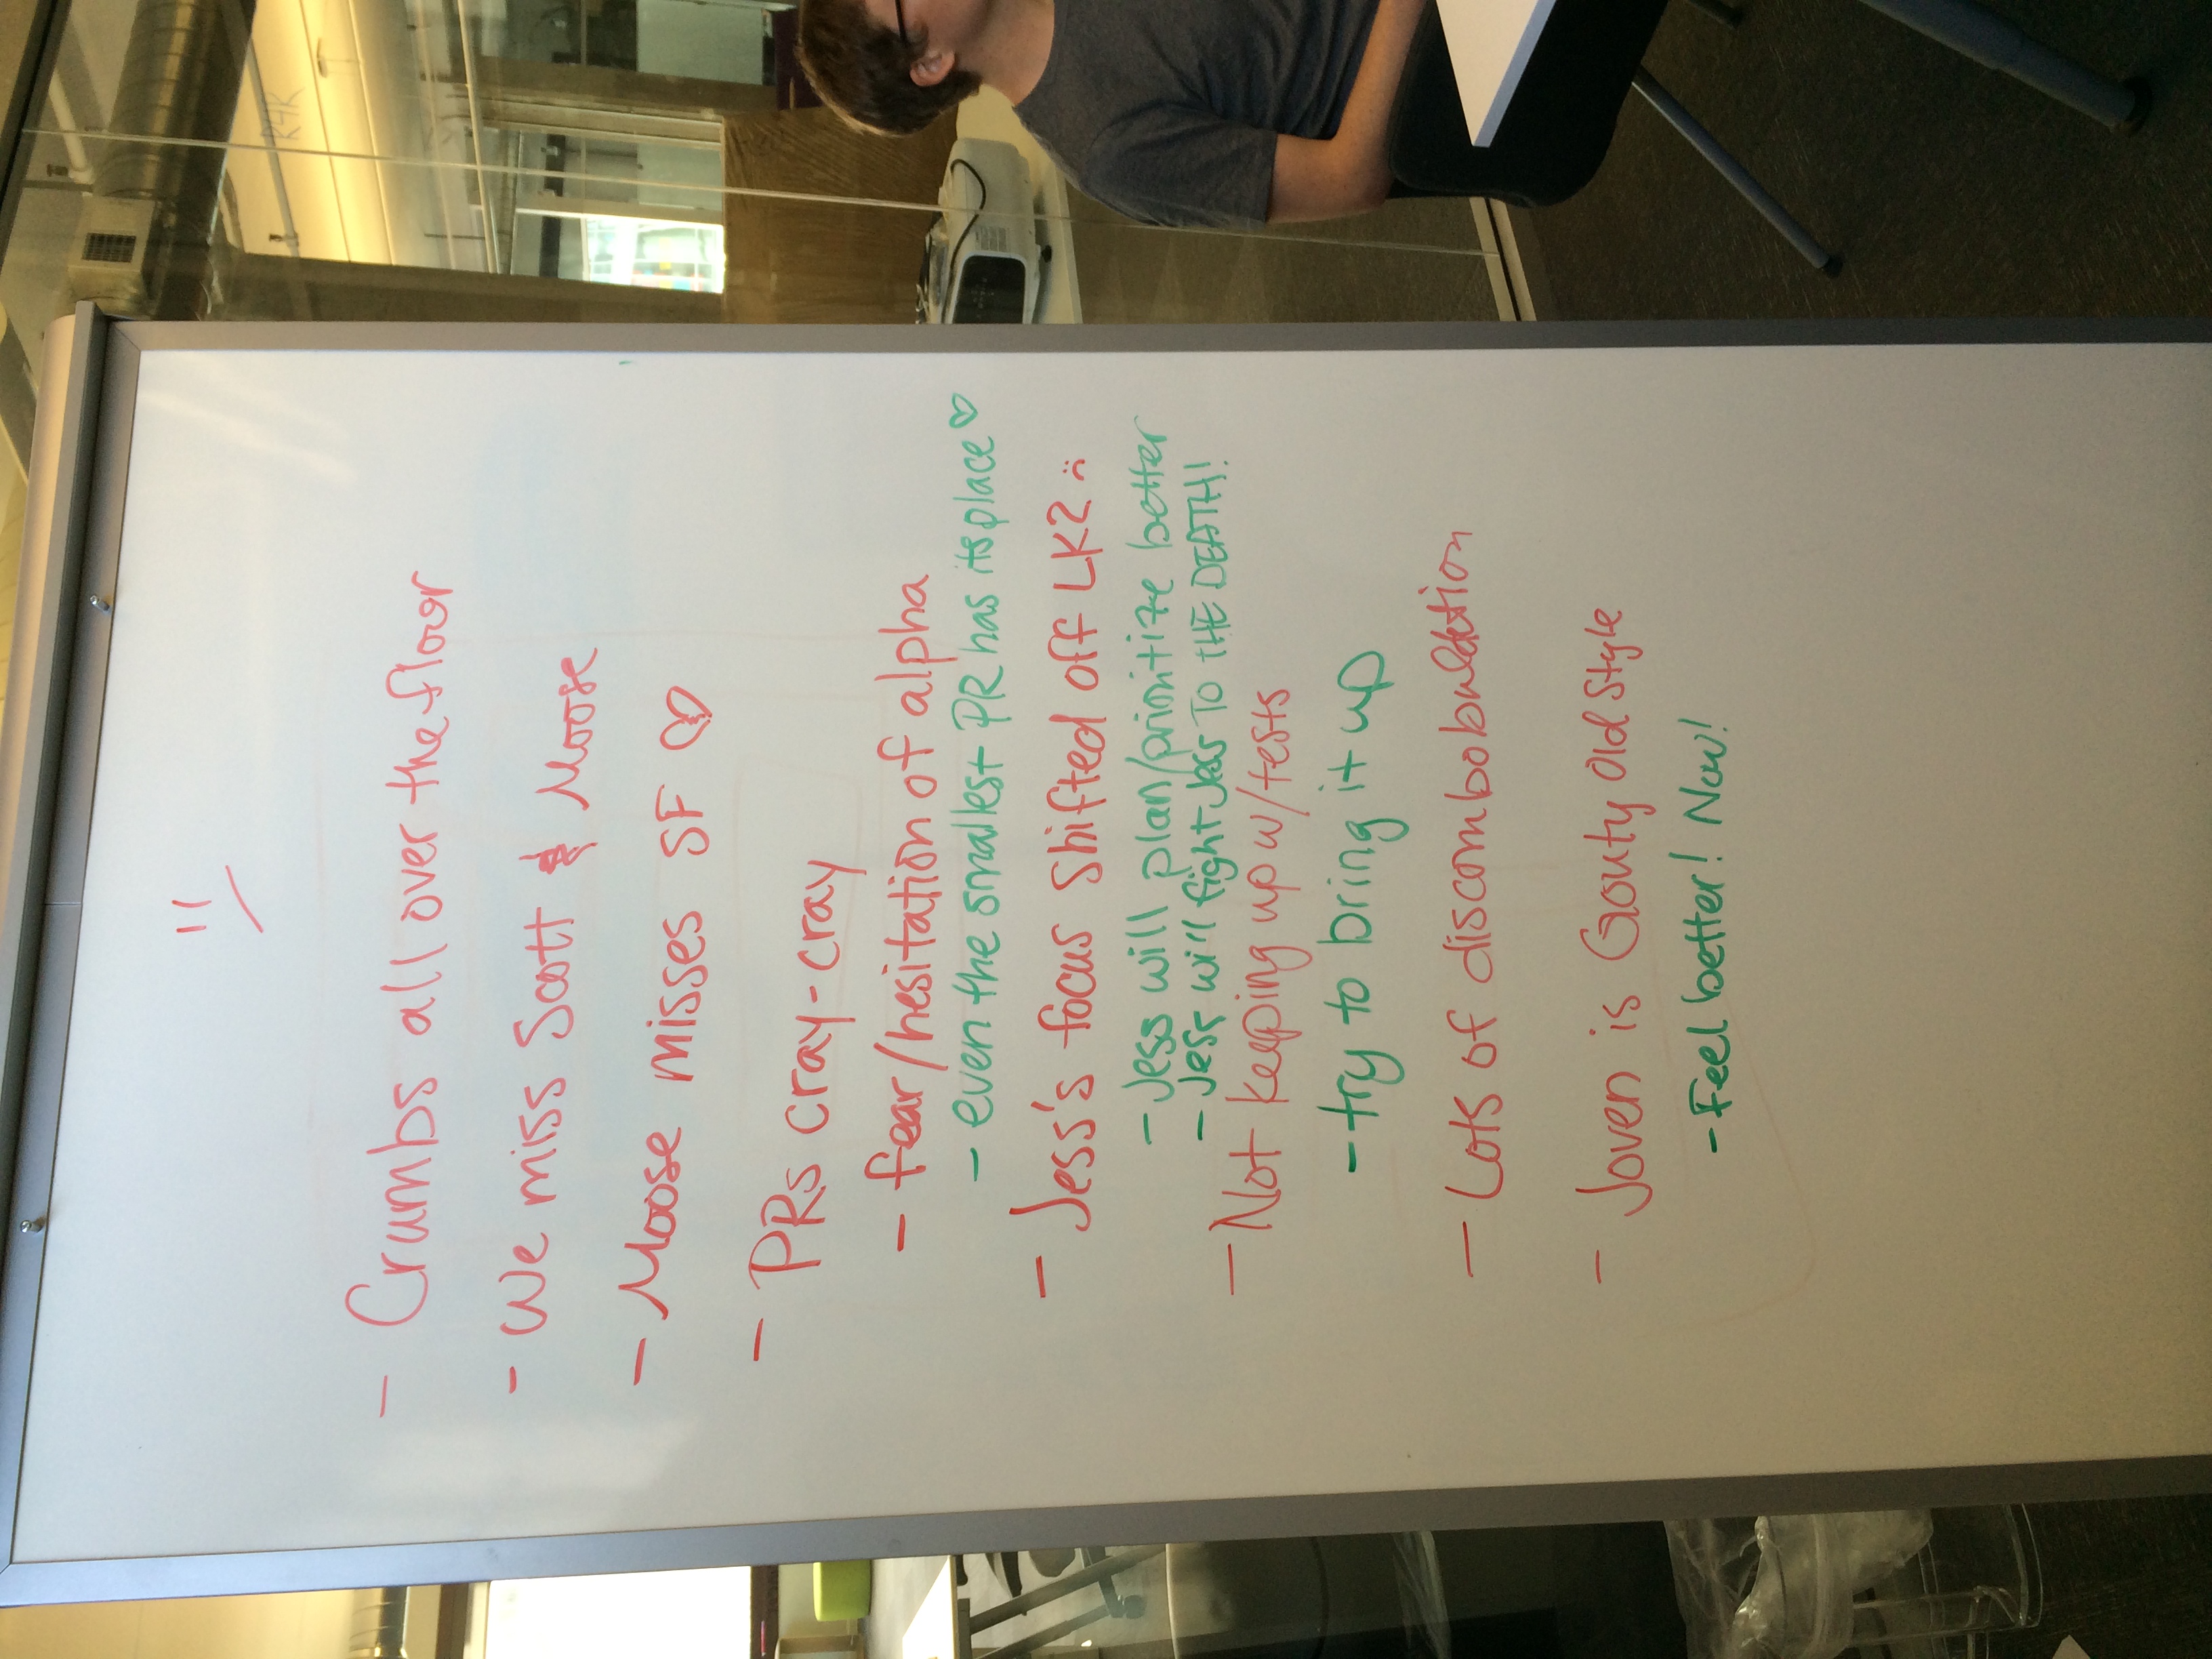 - Crumbs all over the floor
- We miss Scott & Moose
- Moose misses SF ♡
- PRs cray-cray
- fear/hesitation of alpha
- even the smallest PR has its place ♡
- Jess's focus shifted off LK2 :(
- Jess will plan/prioritize better
- Jess will fight Jess TO THE DEATH!
- Not keeping up w/tests
- try to bring it up
- Lots of discombobulation
- Joven is Gouty Old Style
- Feel better! Now!
R4R